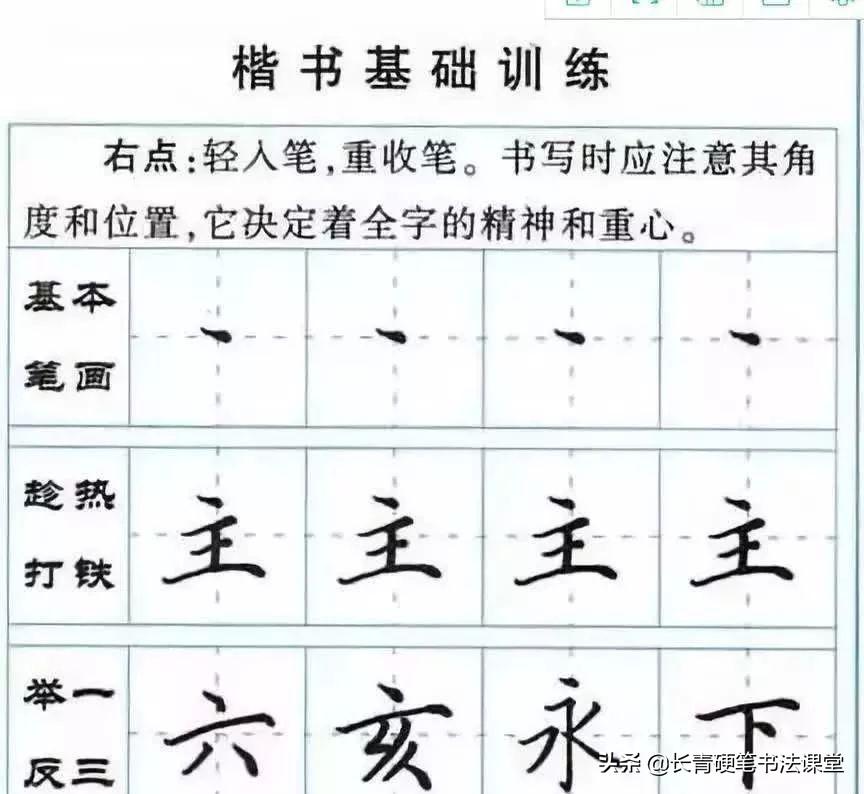 楷书基础训练
右点:轻入笔,重收笔。书写时应注意其角
度和位置,它决定着全字的精神和重心。
基本
笔画
丶 丶 丶 丶
趁热
打铁
主 主 主 主
举一
反三
六 亥 永 下
头条 @长青硬笔书法课堂